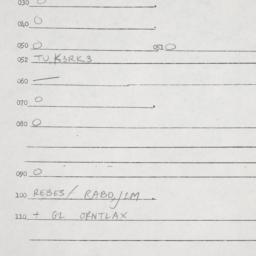 030 O
040 O
050 O 051 O
052 TU K3RK3
060 —
070 O
080 O
090 O
100 REBES/ RABD,/LM
110 + GL ORNTLAX